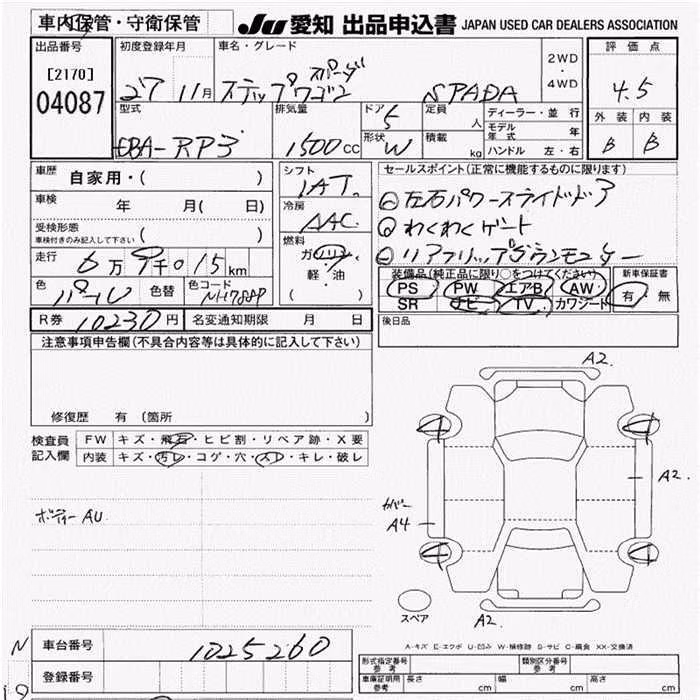 車内保管・守衛保管
JU 愛知 出品申込書 JAPAN USED CAR DEALERS ASSOCIATION
出品番号
[2170]
04087
初度登録年月
27 11月
車名・グレード
ステップワゴン スパーダ SPADA
2WD
・
4WD
評価点
4.5
外装 内装
B B
型式
EBA-RP3
排気量
1500cc
ドア
5
形状
W
定員
人
積載
kg
ディーラー・並行
モデル年式 年
ハンドル 左・右
車歴 自家用・( )
車検 年 月( 日)
受検形態
車検付きのみ記入して下さい ( )
走行 6万9千015km
色 パール 色替 色コード NH788P
R券 10230円 名変通知期限 月 日
シフト
IAT
冷房
AAC
燃料
ガソリン
軽・油
( )
セールスポイント(正常に機能するものに限ります)
左右パワースライドドア
わくわくゲート
リアフリップダウンモニター
装備品(純正品に限り○をつけてください)
PS PW エアB AW
SR ナビ TV カワシート
新車保証書
有・無
後日品
注意事項申告欄(不具合内容等は具体的に記入して下さい)
修復歴 有 (箇所
検査員
記入欄
FW キズ・飛石・ヒビ割・リペア跡・X要
内装 キズ・汚レ・コゲ・穴・スレ・キレ・破レ
ボディー AU
A2
4 4
カバー
A4
A2
4 4
スペア
A2
A-キズ E-エクボ U-凹み W-補修跡 S-サビ C-腐食 XX-交換済
N
車台番号 1025260
登録番号
19
型式指定番号
参考
類別区分番号
参考
車庫証明用
参考
長さ cm 幅 cm 高さ cm